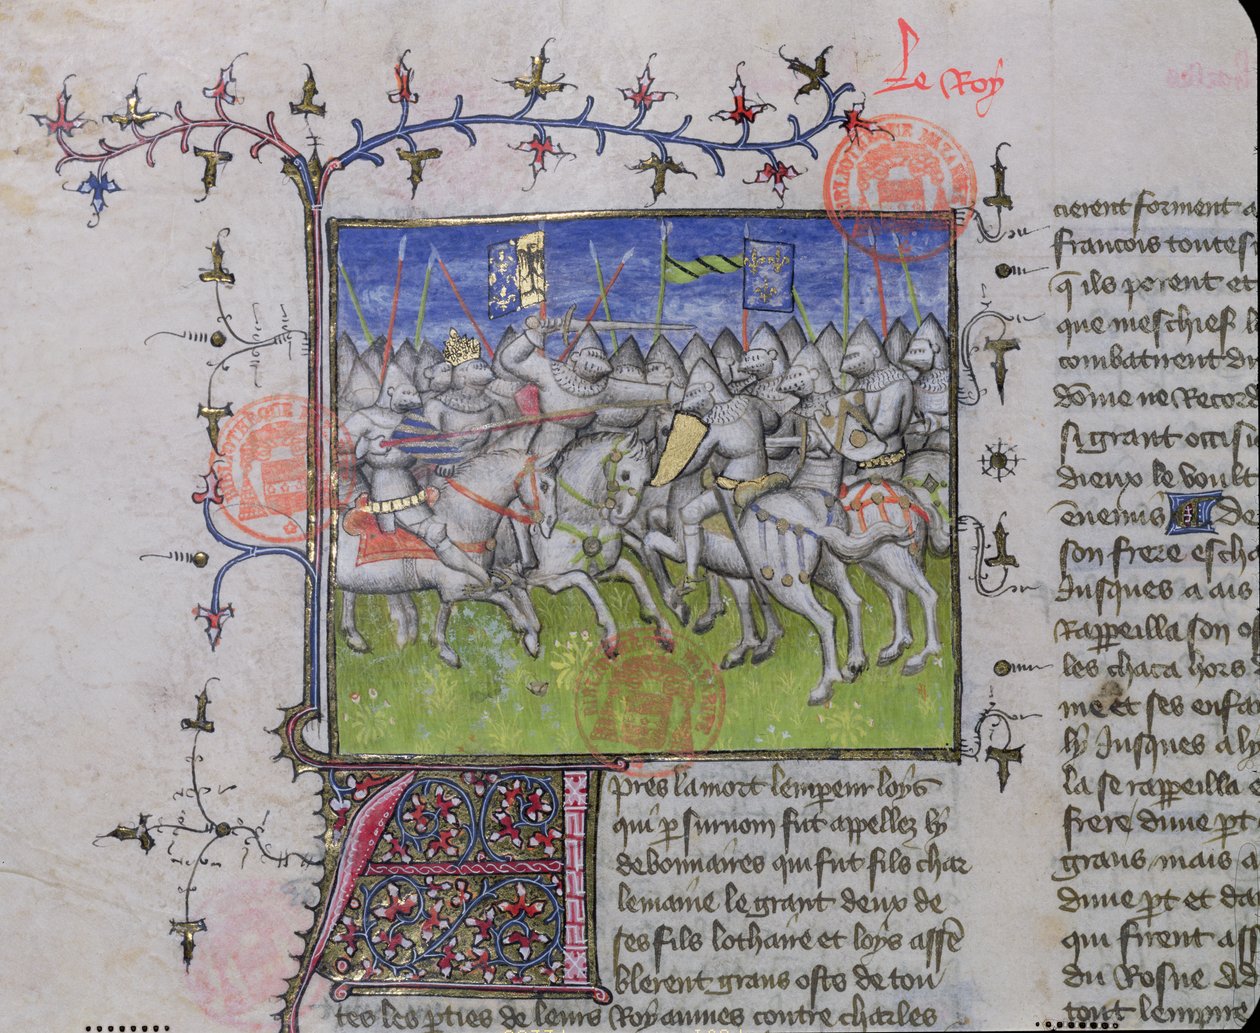 Le Roy
BIBLIOTHEQUE MAZARINE
Apres la mort lempeur loys
qui p surnom fut appellez ly
debonnaires qui fut fils char
lemaine le grant deux de
ses fils lothaire et loys assē
blerent grans ostz de tou
tes les pties de leurs Royaumes contre charles
cierent forment a
francois toutes
q̄ ils perent et
que meschief
combatirent
dōme ne Recor
si grant occisi
dieux le voult
ēnemis de
son frere escha
Jusques a ais
Rappeilla son
les chaca hors
me et ses enfa
ly Jusques a ly
la se rappeilla
frere dune pt
grans mais a
dune pt et da
qui firent ass
du Rosne
tout lempire